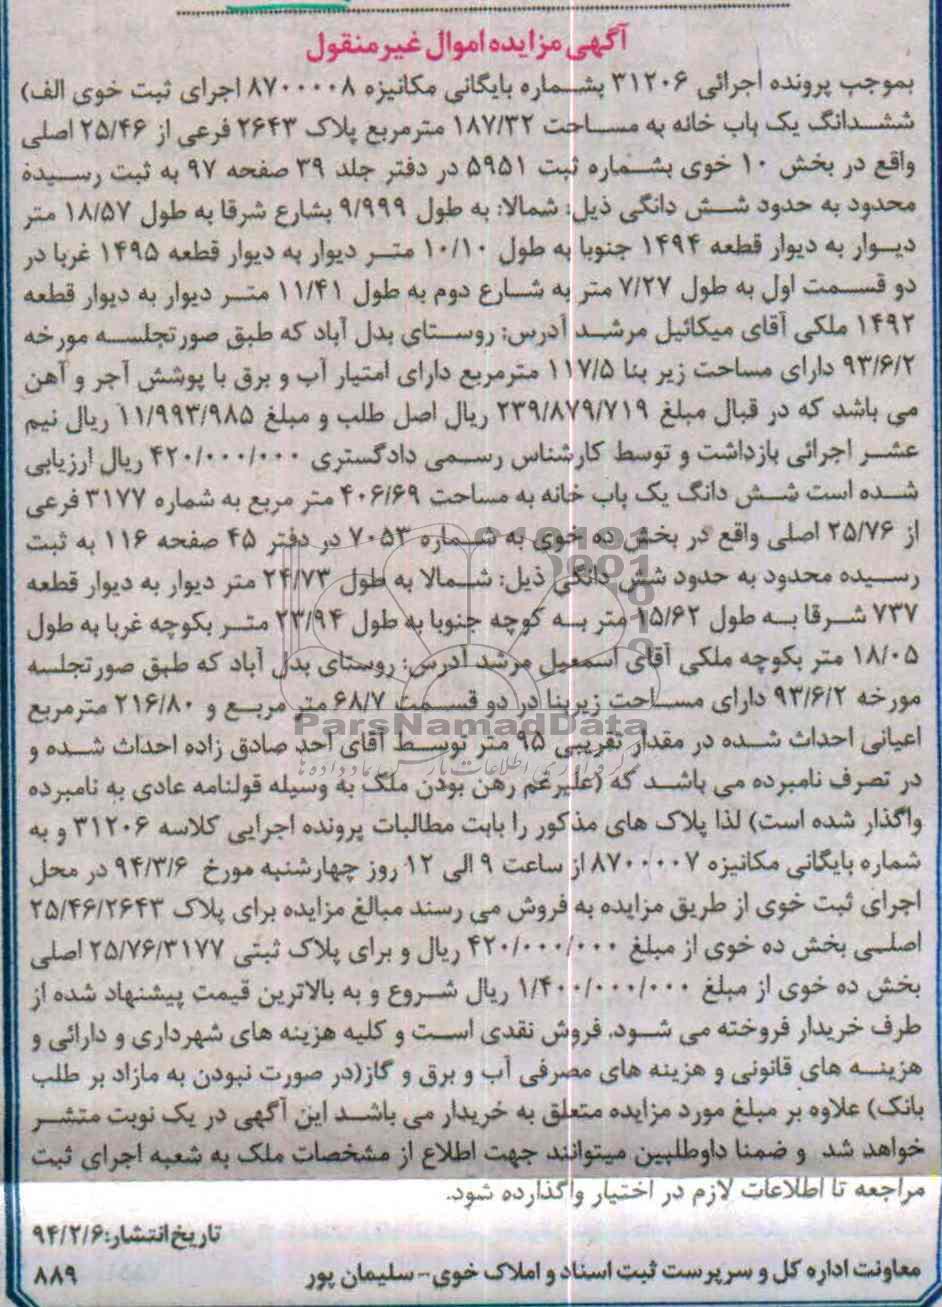 آگهی مزایده اموال غیر منقول
بموجب پرونده اجرائی ۳۱۲۰۶ بشماره بایگانی مکانیزه ۸۷۰۰۰۰۸ اجرای ثبت خوی الف)
ششدانگ یک باب خانه به مساحت ۱۸۷/۳۲ مترمربع پلاک ۲۶۴۳ فرعی از ۲۵/۴۶ اصلی
واقع در بخش ۱۰ خوی بشماره ثبت ۵۹۵۱ در دفتر جلد ۳۹ صفحه ۹۷ به ثبت رسیده
محدود به حدود شش دانگی ذیل: شمالا: به طول ۹/۹۹۹ بشارع شرقا به طول ۱۸/۵۷ متر
دیوار به دیوار قطعه ۱۴۹۴ جنوبا به طول ۱۰/۱۰ متر دیوار به دیوار قطعه ۱۴۹۵ غربا در
دو قسمت اول به طول ۷/۲۷ متر به شارع دوم به طول ۱۱/۴۱ متر دیوار به دیوار قطعه
۱۴۹۲ ملکی آقای میکائیل مرشد آدرس: روستای بدل آباد که طبق صورتجلسه مورخه
۹۳/۶/۲ دارای مساحت زیر بنا ۱۱۷/۵ مترمربع دارای امتیار آب و برق با پوشش آجر و آهن
می باشد که در قبال مبلغ ۲۳۹/۸۷۹/۷۱۹ ریال اصل طلب و مبلغ ۱۱/۹۹۳/۹۸۵ ریال نیم
عشر اجرائی بازداشت و توسط کارشناس رسمی دادگستری ۴۲۰/۰۰۰/۰۰۰ ریال ارزیابی
شده است شش دانگ یک باب خانه به مساحت ۴۰۶/۶۹ متر مربع به شماره ۳۱۷۷ فرعی
از ۲۵/۷۶ اصلی واقع در بخش ده خوی به شماره ۷۰۵۳ در دفتر ۴۵ صفحه ۱۱۶ به ثبت
رسیده محدود به حدود شش دانگی ذیل: شمالا به طول ۲۴/۷۳ متر دیوار به دیوار قطعه
۷۳۷ شرقا به طول ۱۵/۶۲ متر به کوچه جنوبا به طول ۲۳/۹۴ متر بکوچه غربا به طول
۱۸/۰۵ متر بکوچه ملکی آقای اسمعیل مرشد آدرس: روستای بدل آباد که طبق صورتجلسه
مورخه ۹۳/۶/۲ دارای مساحت زیربنا در دو قسمت ۶۸/۷ متر مربع و ۲۱۶/۸۰ مترمربع
اعیانی احداث شده در مقدار تقریبی ۹۵ متر توسط آقای احد صادق زاده احداث شده و
در تصرف نامبرده می باشد که (علیرغم رهن بودن ملک به وسیله قولنامه عادی به نامبرده
واگذار شده است) لذا پلاک های مذکور را بابت مطالبات پرونده اجرایی کلاسه ۳۱۲۰۶ و به
شماره بایگانی مکانیزه ۸۷۰۰۰۰۷ از ساعت ۹ الی ۱۲ روز چهارشنبه مورخ ۹۴/۳/۶ در محل
اجرای ثبت خوی از طریق مزایده به فروش می رسند مبالغ مزایده برای پلاک ۲۵/۴۶/۲۶۴۳
اصلی بخش ده خوی از مبلغ ۴۲۰/۰۰۰/۰۰۰ ریال و برای پلاک ثبتی ۲۵/۷۶/۳۱۷۷ اصلی
بخش ده خوی از مبلغ ۱/۴۰۰/۰۰۰/۰۰۰ ریال شروع و به بالاترین قیمت پیشنهاد شده از
طرف خریدار فروخته می شود. فروش نقدی است و کلیه هزینه های شهرداری و دارائی و
هزینه های قانونی و هزینه های مصرفی آب و برق و گاز(در صورت نبودن به مازاد بر طلب
بانک) علاوه بر مبلغ مورد مزایده متعلق به خریدار می باشد این آگهی در یک نوبت منتشر
خواهد شد و ضمنا داوطلبین میتوانند جهت اطلاع از مشخصات ملک به شعبه اجرای ثبت
مراجعه تا اطلاعات لازم در اختیار واگذارده شود.
تاریخ انتشار: ۹۴/۲/۶
معاونت اداره کل و سرپرست ثبت اسناد و املاک خوی - سلیمان پور
۸۸۹
ParsNamadData